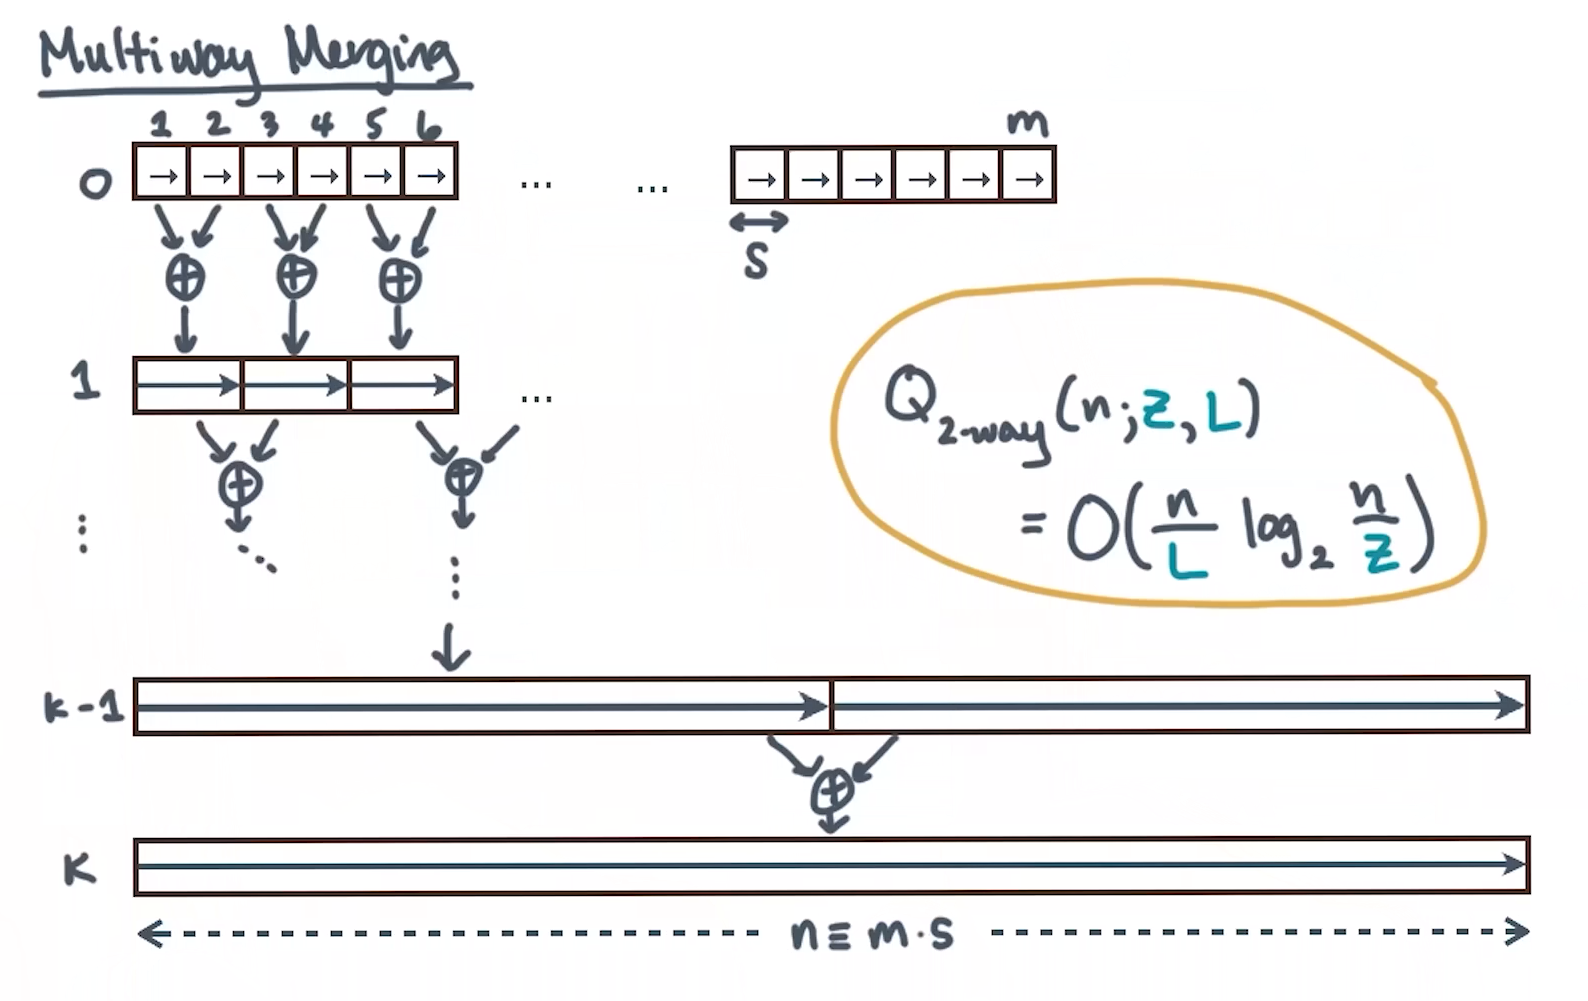 Multiway Merging
1 2 3 4 5 6 m
0 → → → → → → ... ... → → → → → →
S
1 ...
Q2-way(n; Z, L)
= O(n/L log2 n/Z)
⋮
k-1
K
n ≡ m·s